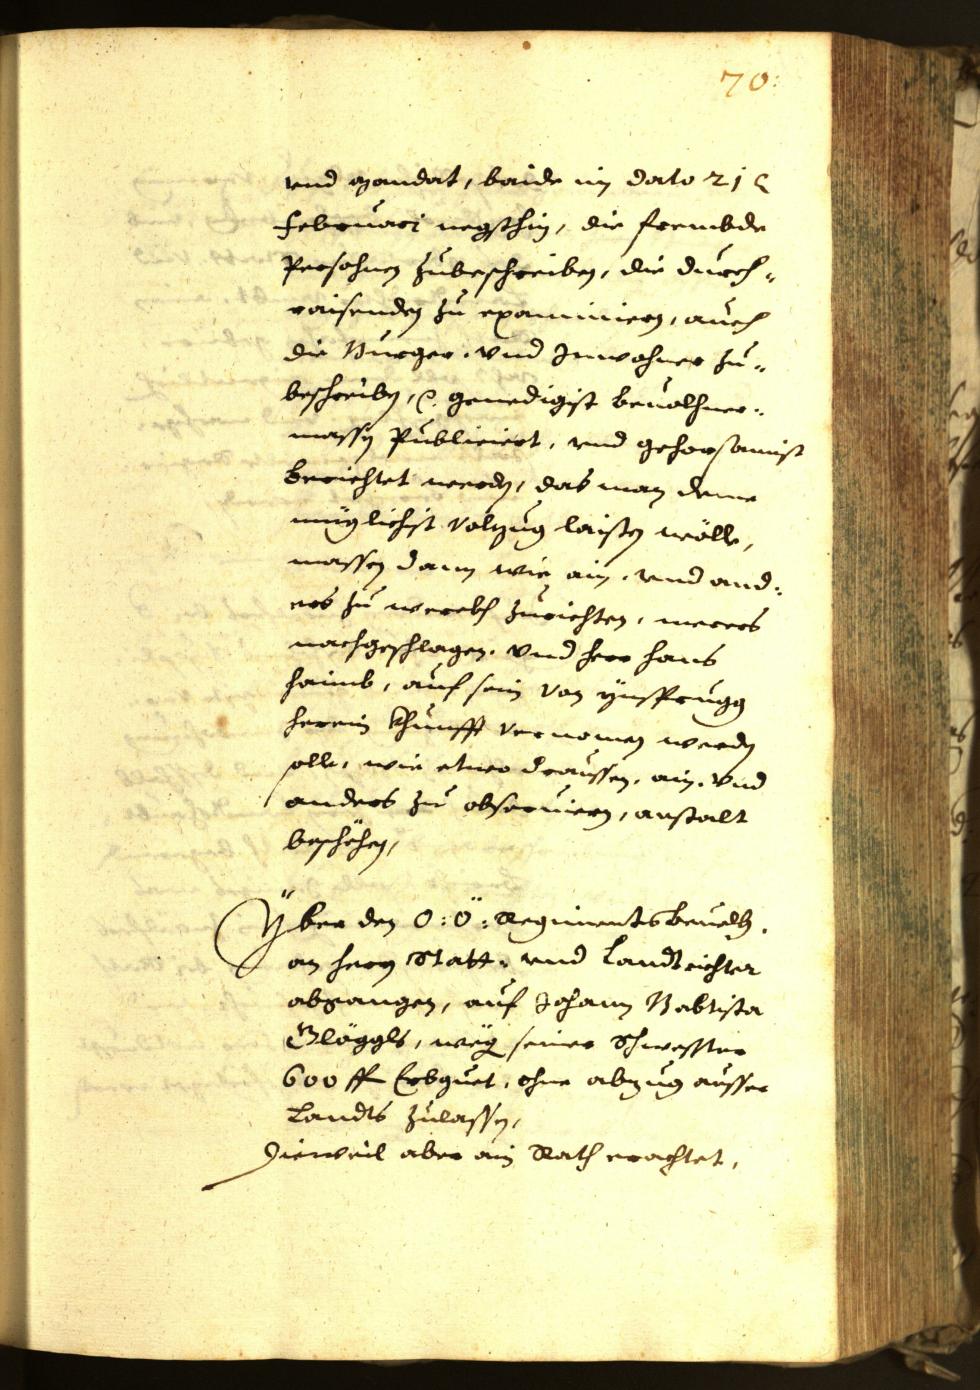 70.
vnd mandat, baide im dato 21
Februari negsthin, die frembde
Persohnen zubeschreiben, die durch-
raisenden zu examiniern, auch
die Burger- vnd Inwohner zu-
beschreiben, genedigist beuolhner-
massen Publiciert, vnd gehorsamist
berichtet werden, das man deme
müglichist volzug laisten wölle,
massen dann wie ain- vnd and-
ers zu werckh zurichten, merers
nachgeschlagen, vnd herr Hans
Haimb, auf sein von ÿnsprugg
herein Khunfft vernomen werden
solle, wie etwo draussen, ain- vnd
anders zu obseruiern, anstalt
beschëhen,
Über den O: Ö: Regiments beuelch,
an herrn Statt- vnd Landtrichter
abgangen, auf Johann Babtista
Glöggls, weg seiner Schwester
600 fl Erbguet, ohne abzug ausser
Landts zulassen,
Dieweil aber ain Rath erachtet,